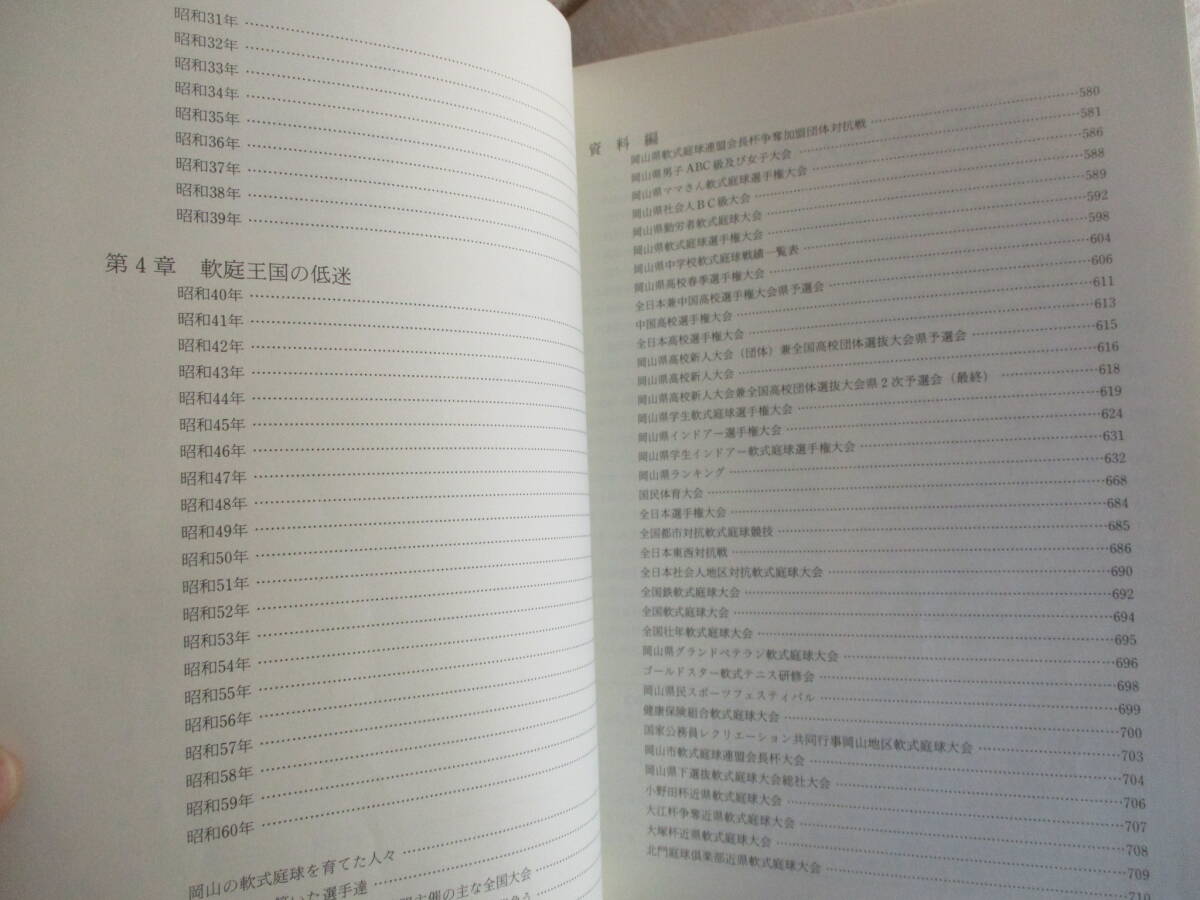 昭和31年
昭和32年
昭和33年
昭和34年
昭和35年
昭和36年
昭和37年
昭和38年
昭和39年
第4章 軟庭王国の低迷
昭和40年
昭和41年
昭和42年
昭和43年
昭和44年
昭和45年
昭和46年
昭和47年
昭和48年
昭和49年
昭和50年
昭和51年
昭和52年
昭和53年
昭和54年
昭和55年
昭和56年
昭和57年
昭和58年
昭和59年
昭和60年
岡山の軟式庭球を育てた人々
いた選手達
主催の主な全国大会
資料編
岡山県軟式庭球連盟会長杯争奪加盟団体対抗戦 580
岡山県男子ABC級及び女子大会 581
岡山県ママさん軟式庭球選手権大会 586
岡山県社会人BC級大会 588
岡山県勤労者軟式庭球大会 589
岡山県軟式庭球選手権大会 592
岡山県中学校軟式庭球戦績一覧表 598
岡山県高校春季選手権大会 604
全日本兼中国高校選手権大会県予選会 606
中国高校選手権大会 611
全日本高校選手権大会 613
岡山県高校新人大会（団体）兼全国高校団体選抜大会県予選会 615
岡山県高校新人大会 616
岡山県高校新人大会兼全国高校団体選抜大会県2次予選会（最終） 618
岡山県学生軟式庭球選手権大会 619
岡山県インドアー選手権大会 624
岡山県学生インドアー軟式庭球選手権大会 631
岡山県ランキング 632
国民体育大会 668
全日本選手権大会 684
全国都市対抗軟式庭球競技 685
全日本東西対抗戦 686
全日本社会人地区対抗軟式庭球大会 690
全国鉄軟式庭球大会 692
全国軟式庭球大会 694
全国壮年軟式庭球大会 695
岡山県グランドベテラン軟式庭球大会 696
ゴールドスター軟式テニス研修会 698
岡山県民スポーツフェスティバル 699
健康保険組合軟式庭球大会 700
国家公務員レクリエーション共同行事岡山地区軟式庭球大会 703
岡山市軟式庭球連盟会長杯大会 704
岡山県下選抜軟式庭球大会総社大会 706
小野田杯近県軟式庭球大会 707
大江杯争奪近県軟式庭球大会 708
大塚杯近県軟式庭球大会 709
北門庭球倶楽部近県軟式庭球大会 710